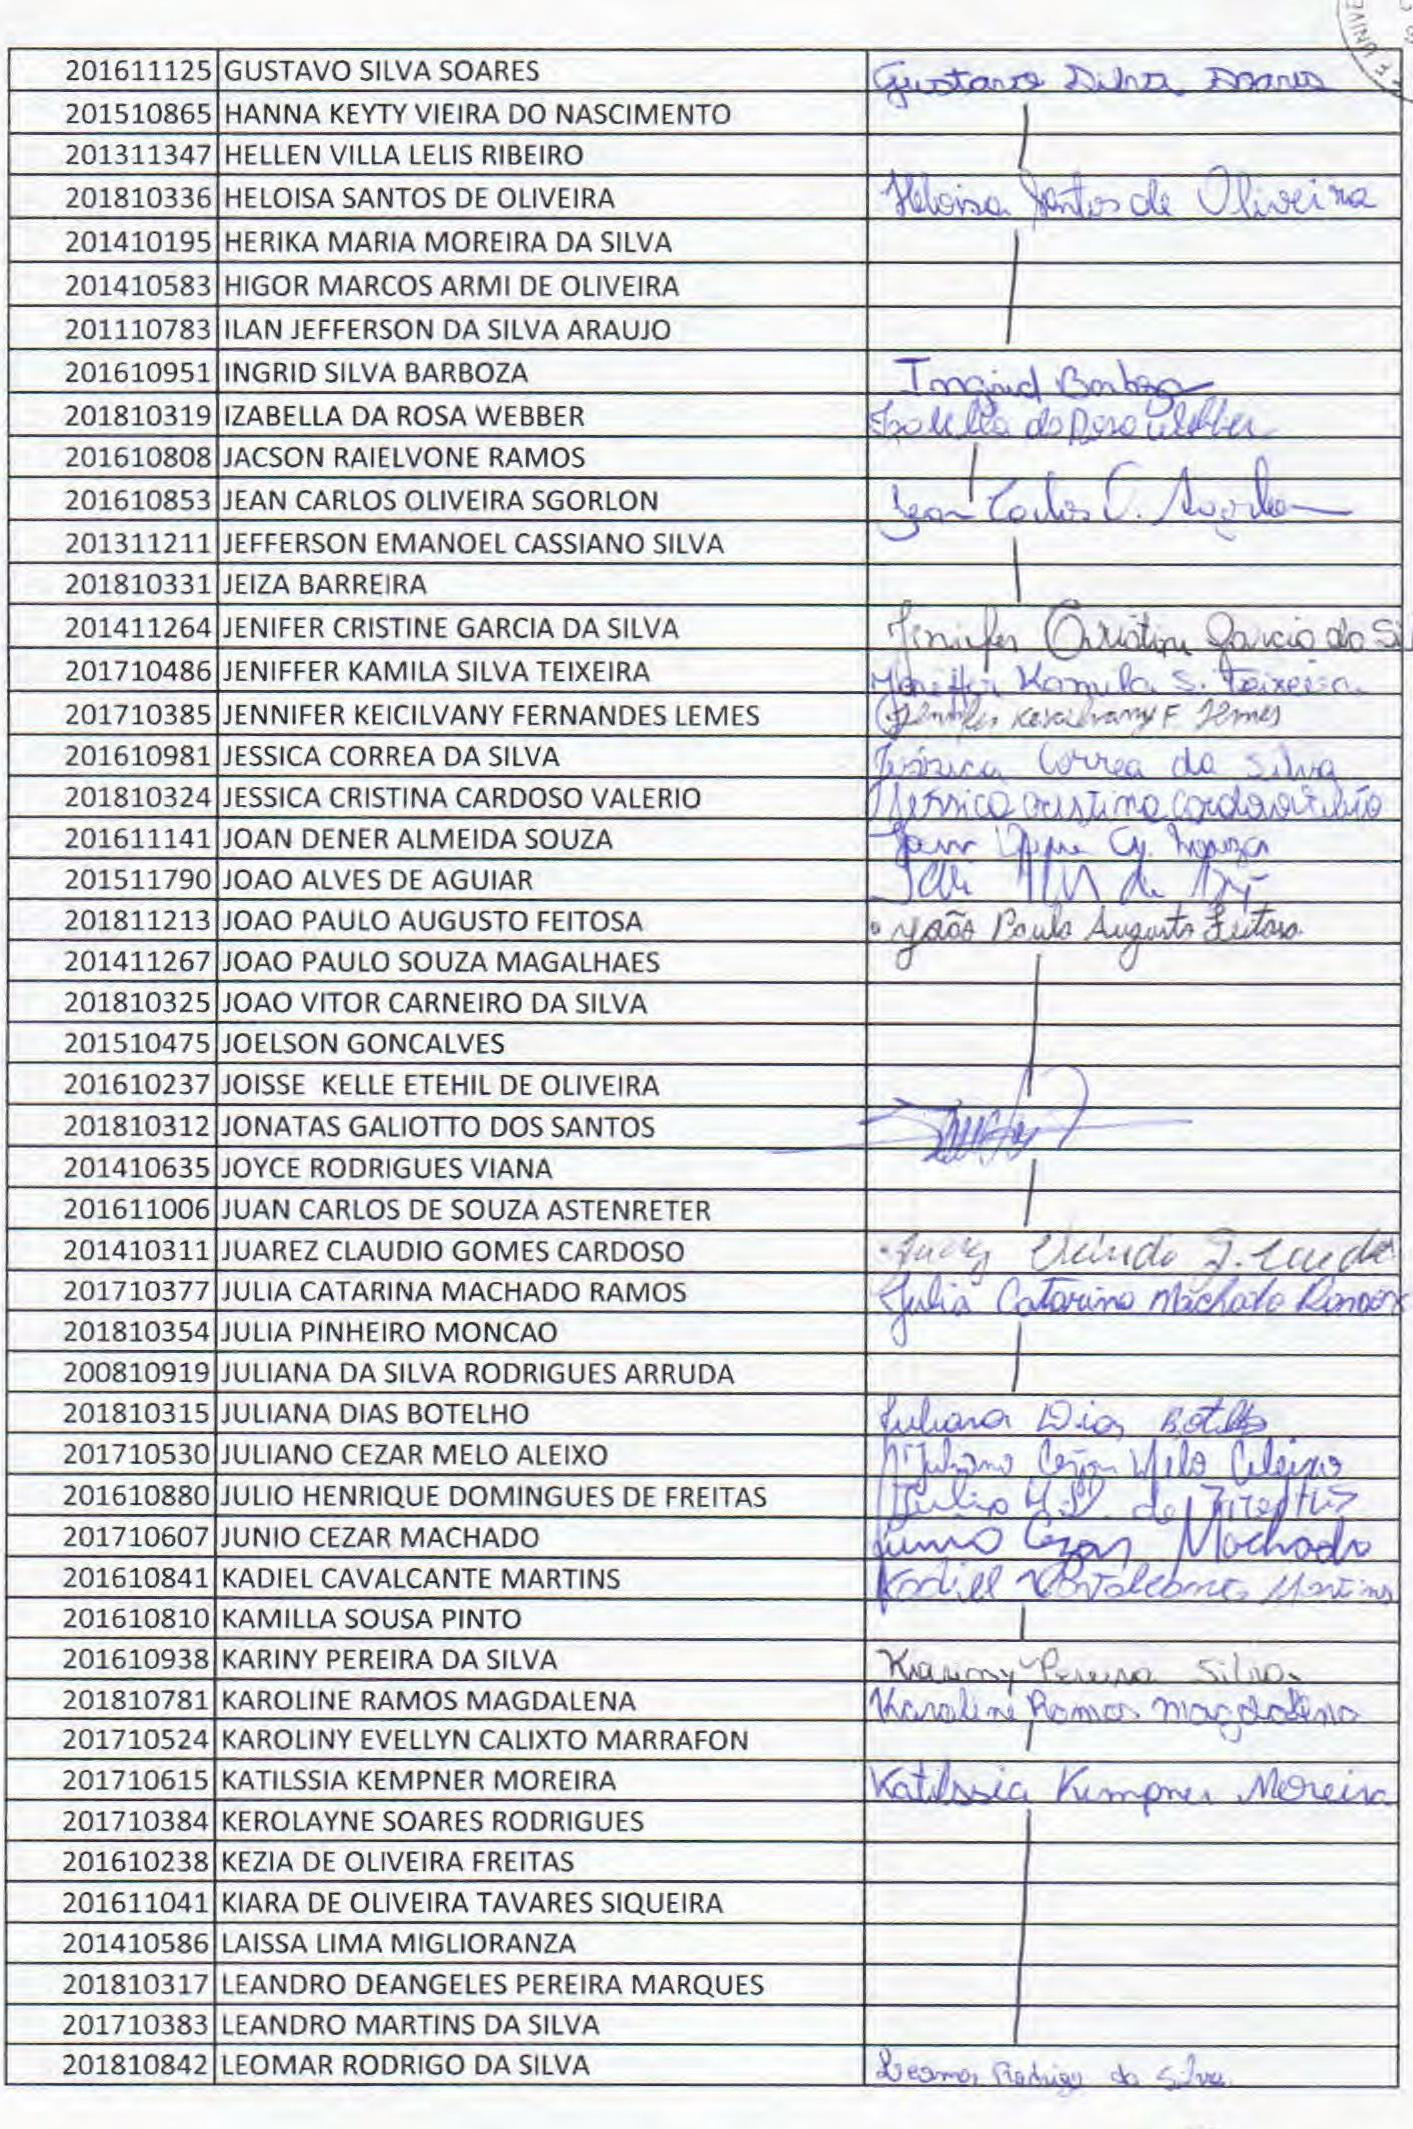 201611125 GUSTAVO SILVA SOARES Gustavo Silva Soares
201510865 HANNA KEYTY VIEIRA DO NASCIMENTO
201311347 HELLEN VILLA LELIS RIBEIRO
201810336 HELOISA SANTOS DE OLIVEIRA Heloisa Santos de Oliveira
201410195 HERIKA MARIA MOREIRA DA SILVA
201410583 HIGOR MARCOS ARMI DE OLIVEIRA
201110783 ILAN JEFFERSON DA SILVA ARAUJO
201610951 INGRID SILVA BARBOZA Ingrid Barboza
201810319 IZABELLA DA ROSA WEBBER Izabella da Rosa Webber
201610808 JACSON RAIELVONE RAMOS
201610853 JEAN CARLOS OLIVEIRA SGORLON Jean Carlos O. Sgorlon
201311211 JEFFERSON EMANOEL CASSIANO SILVA
201810331 JEIZA BARREIRA
201411264 JENIFER CRISTINE GARCIA DA SILVA Jenifer Cristine Garcia da Sil
201710486 JENIFFER KAMILA SILVA TEIXEIRA Jeniffer Kamila S. Teixeira
201710385 JENNIFER KEICILVANY FERNANDES LEMES Jennifer Keicilvany F. Lemes
201610981 JESSICA CORREA DA SILVA Jéssica Correa da Silva
201810324 JESSICA CRISTINA CARDOSO VALERIO Jessica Cristina Cardoso Valério
201611141 JOAN DENER ALMEIDA SOUZA
201511790 JOAO ALVES DE AGUIAR
201811213 JOAO PAULO AUGUSTO FEITOSA João Paulo Augusto Feitosa
201411267 JOAO PAULO SOUZA MAGALHAES
201810325 JOAO VITOR CARNEIRO DA SILVA
201510475 JOELSON GONCALVES
201610237 JOISSE KELLE ETEHIL DE OLIVEIRA
201810312 JONATAS GALIOTTO DOS SANTOS
201410635 JOYCE RODRIGUES VIANA
201611006 JUAN CARLOS DE SOUZA ASTENRETER
201410311 JUAREZ CLAUDIO GOMES CARDOSO
201710377 JULIA CATARINA MACHADO RAMOS Julia Catarina Machado Ramos
201810354 JULIA PINHEIRO MONCAO
200810919 JULIANA DA SILVA RODRIGUES ARRUDA
201810315 JULIANA DIAS BOTELHO Juliana Dias Botelho
201710530 JULIANO CEZAR MELO ALEIXO Juliano Cezar Melo Aleixo
201610880 JULIO HENRIQUE DOMINGUES DE FREITAS Julio H. D. de Freitas
201710607 JUNIO CEZAR MACHADO Junio Cezar Machado
201610841 KADIEL CAVALCANTE MARTINS Kadiel Cavalcante Martins
201610810 KAMILLA SOUSA PINTO
201610938 KARINY PEREIRA DA SILVA Kariny Pereira Silva
201810781 KAROLINE RAMOS MAGDALENA Karoline Ramos Magdalena
201710524 KAROLINY EVELLYN CALIXTO MARRAFON
201710615 KATILSSIA KEMPNER MOREIRA Katilssia Kempner Moreira
201710384 KEROLAYNE SOARES RODRIGUES
201610238 KEZIA DE OLIVEIRA FREITAS
201611041 KIARA DE OLIVEIRA TAVARES SIQUEIRA
201410586 LAISSA LIMA MIGLIORANZA
201810317 LEANDRO DEANGELES PEREIRA MARQUES
201710383 LEANDRO MARTINS DA SILVA
201810842 LEOMAR RODRIGO DA SILVA Leomar Rodrigo da Silva